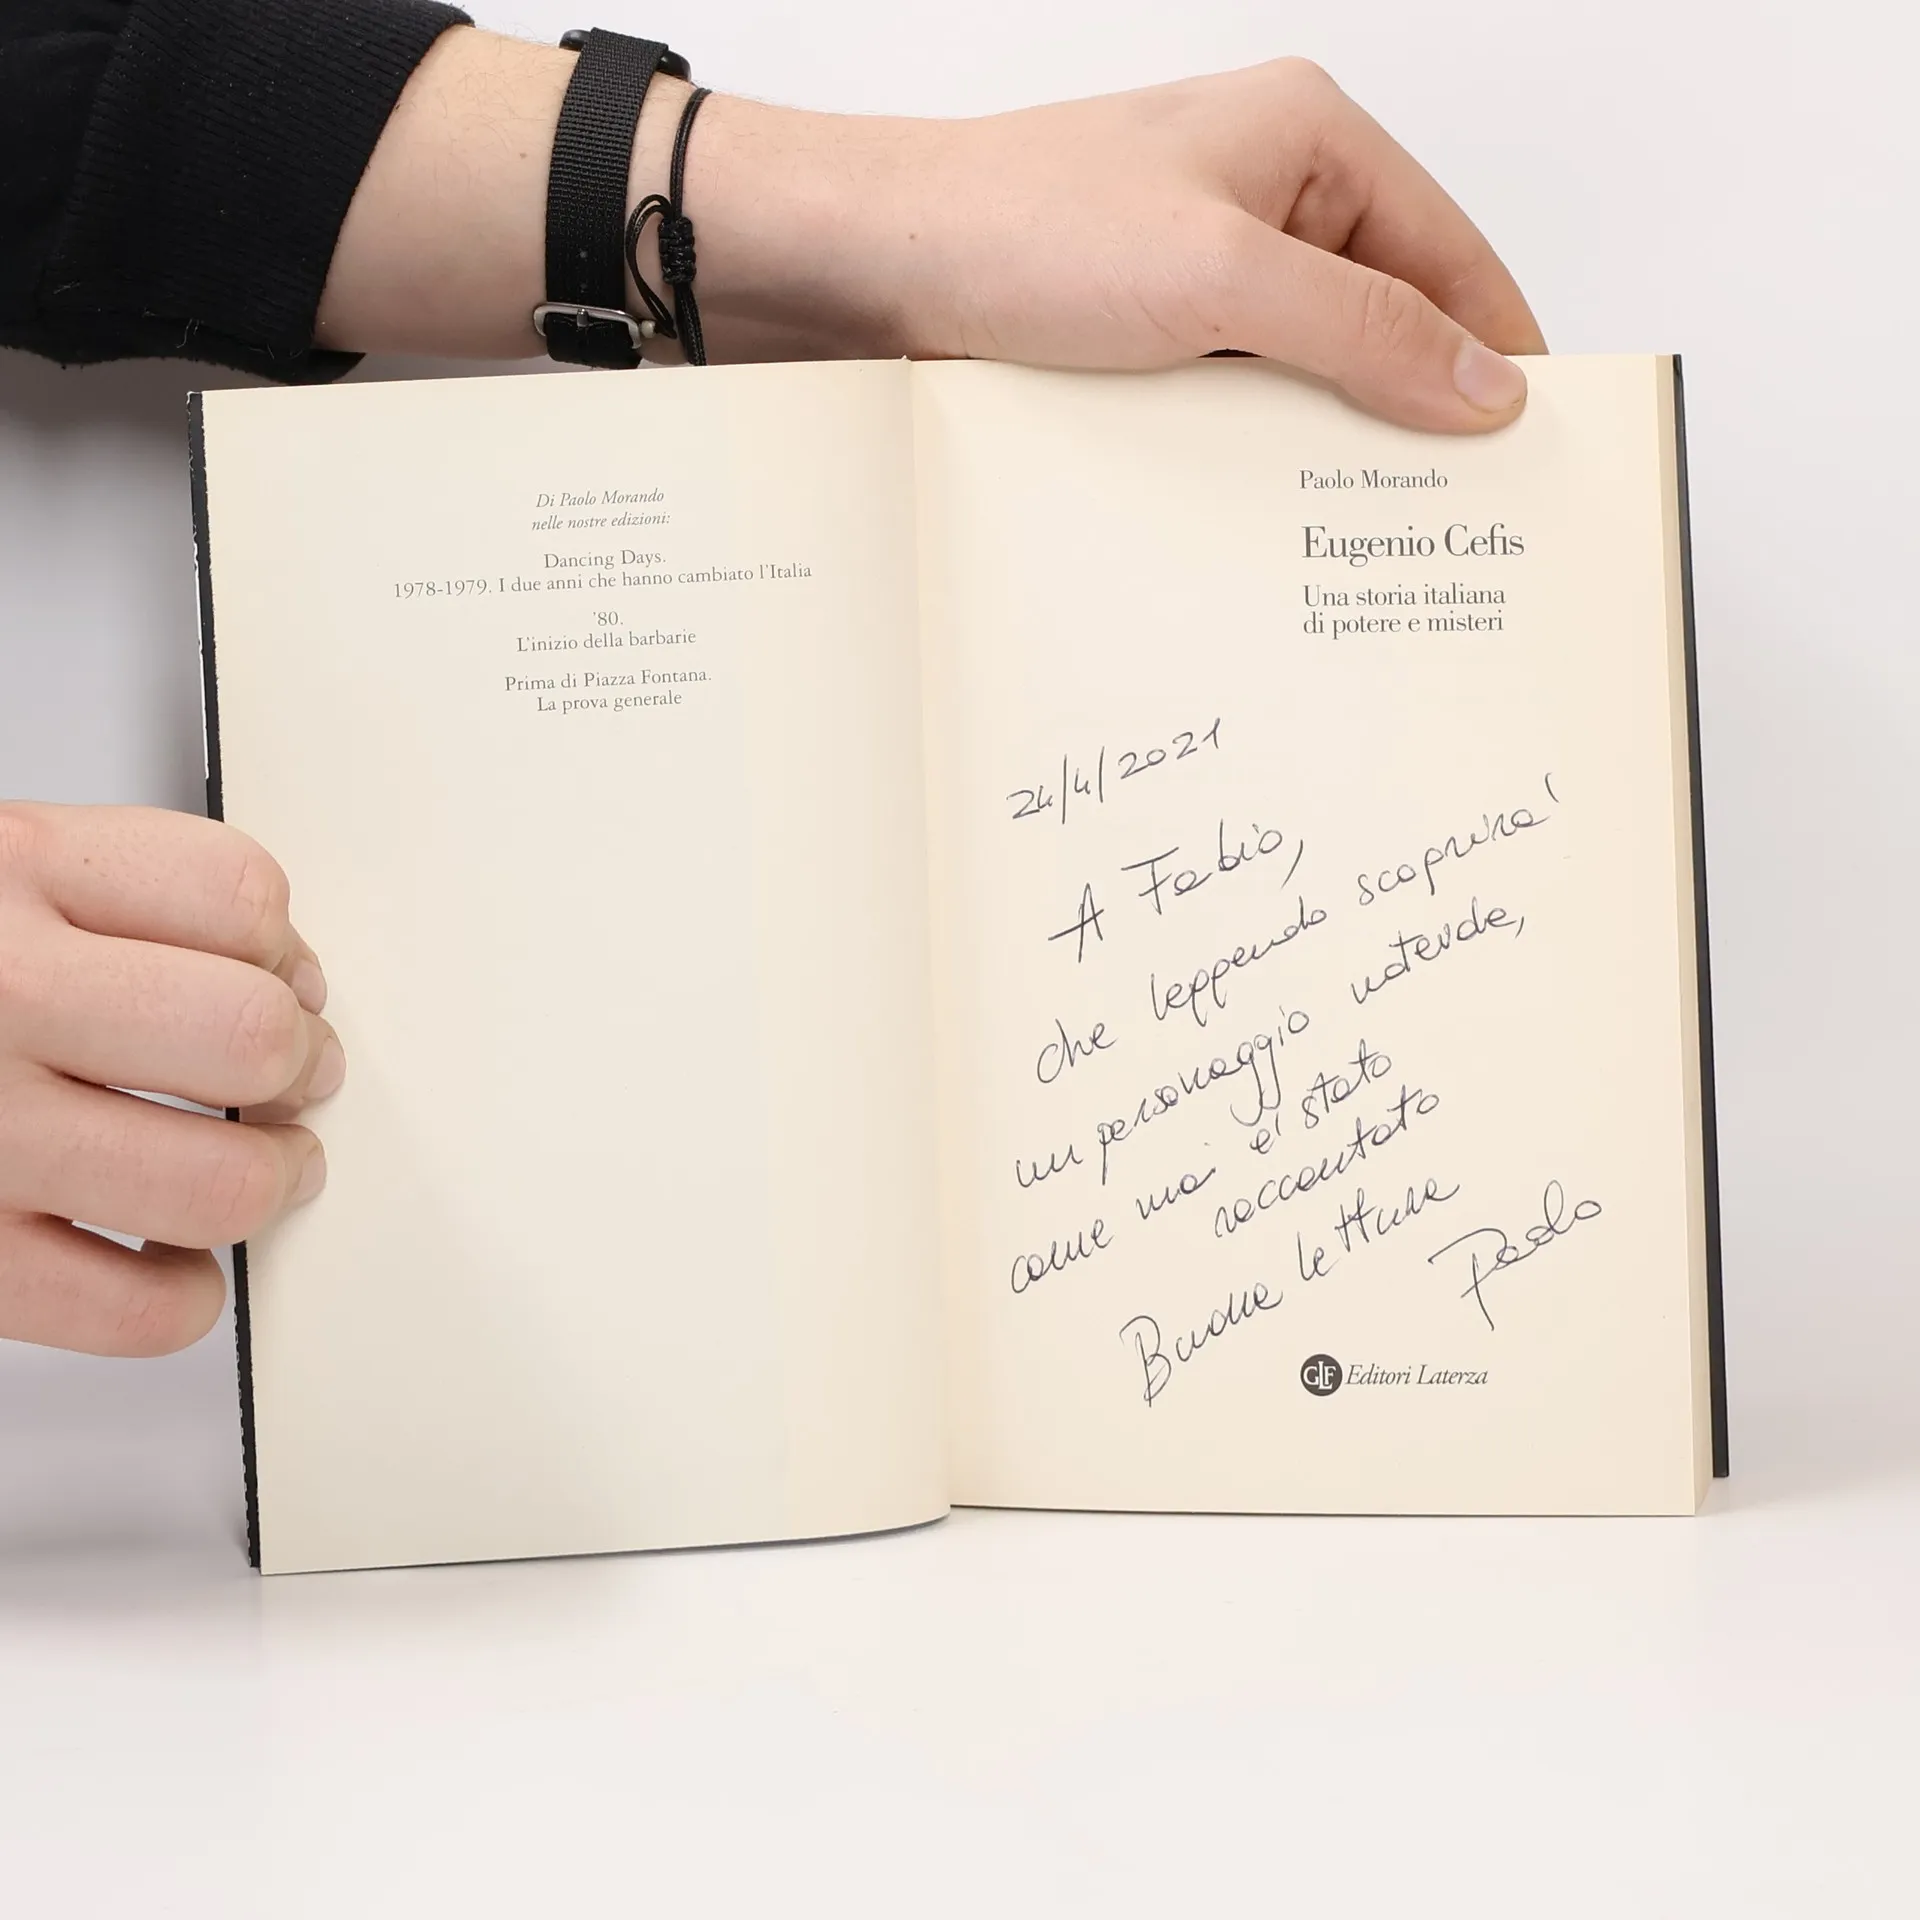 Di Paolo Morando
nelle nostre edizioni:
Dancing Days.
1978-1979. I due anni che hanno cambiato l'Italia
'80.
L'inizio della barbarie
Prima di Piazza Fontana.
La prova generale
Paolo Morando
Eugenio Cefis
Una storia italiana
di potere e misteri
24/4/2021
A Fabio,
che leggendo scoprira'
un personaggio notevole,
come mai e' stato
raccontato
Buona lettura
Paolo
GLF Editori Laterza